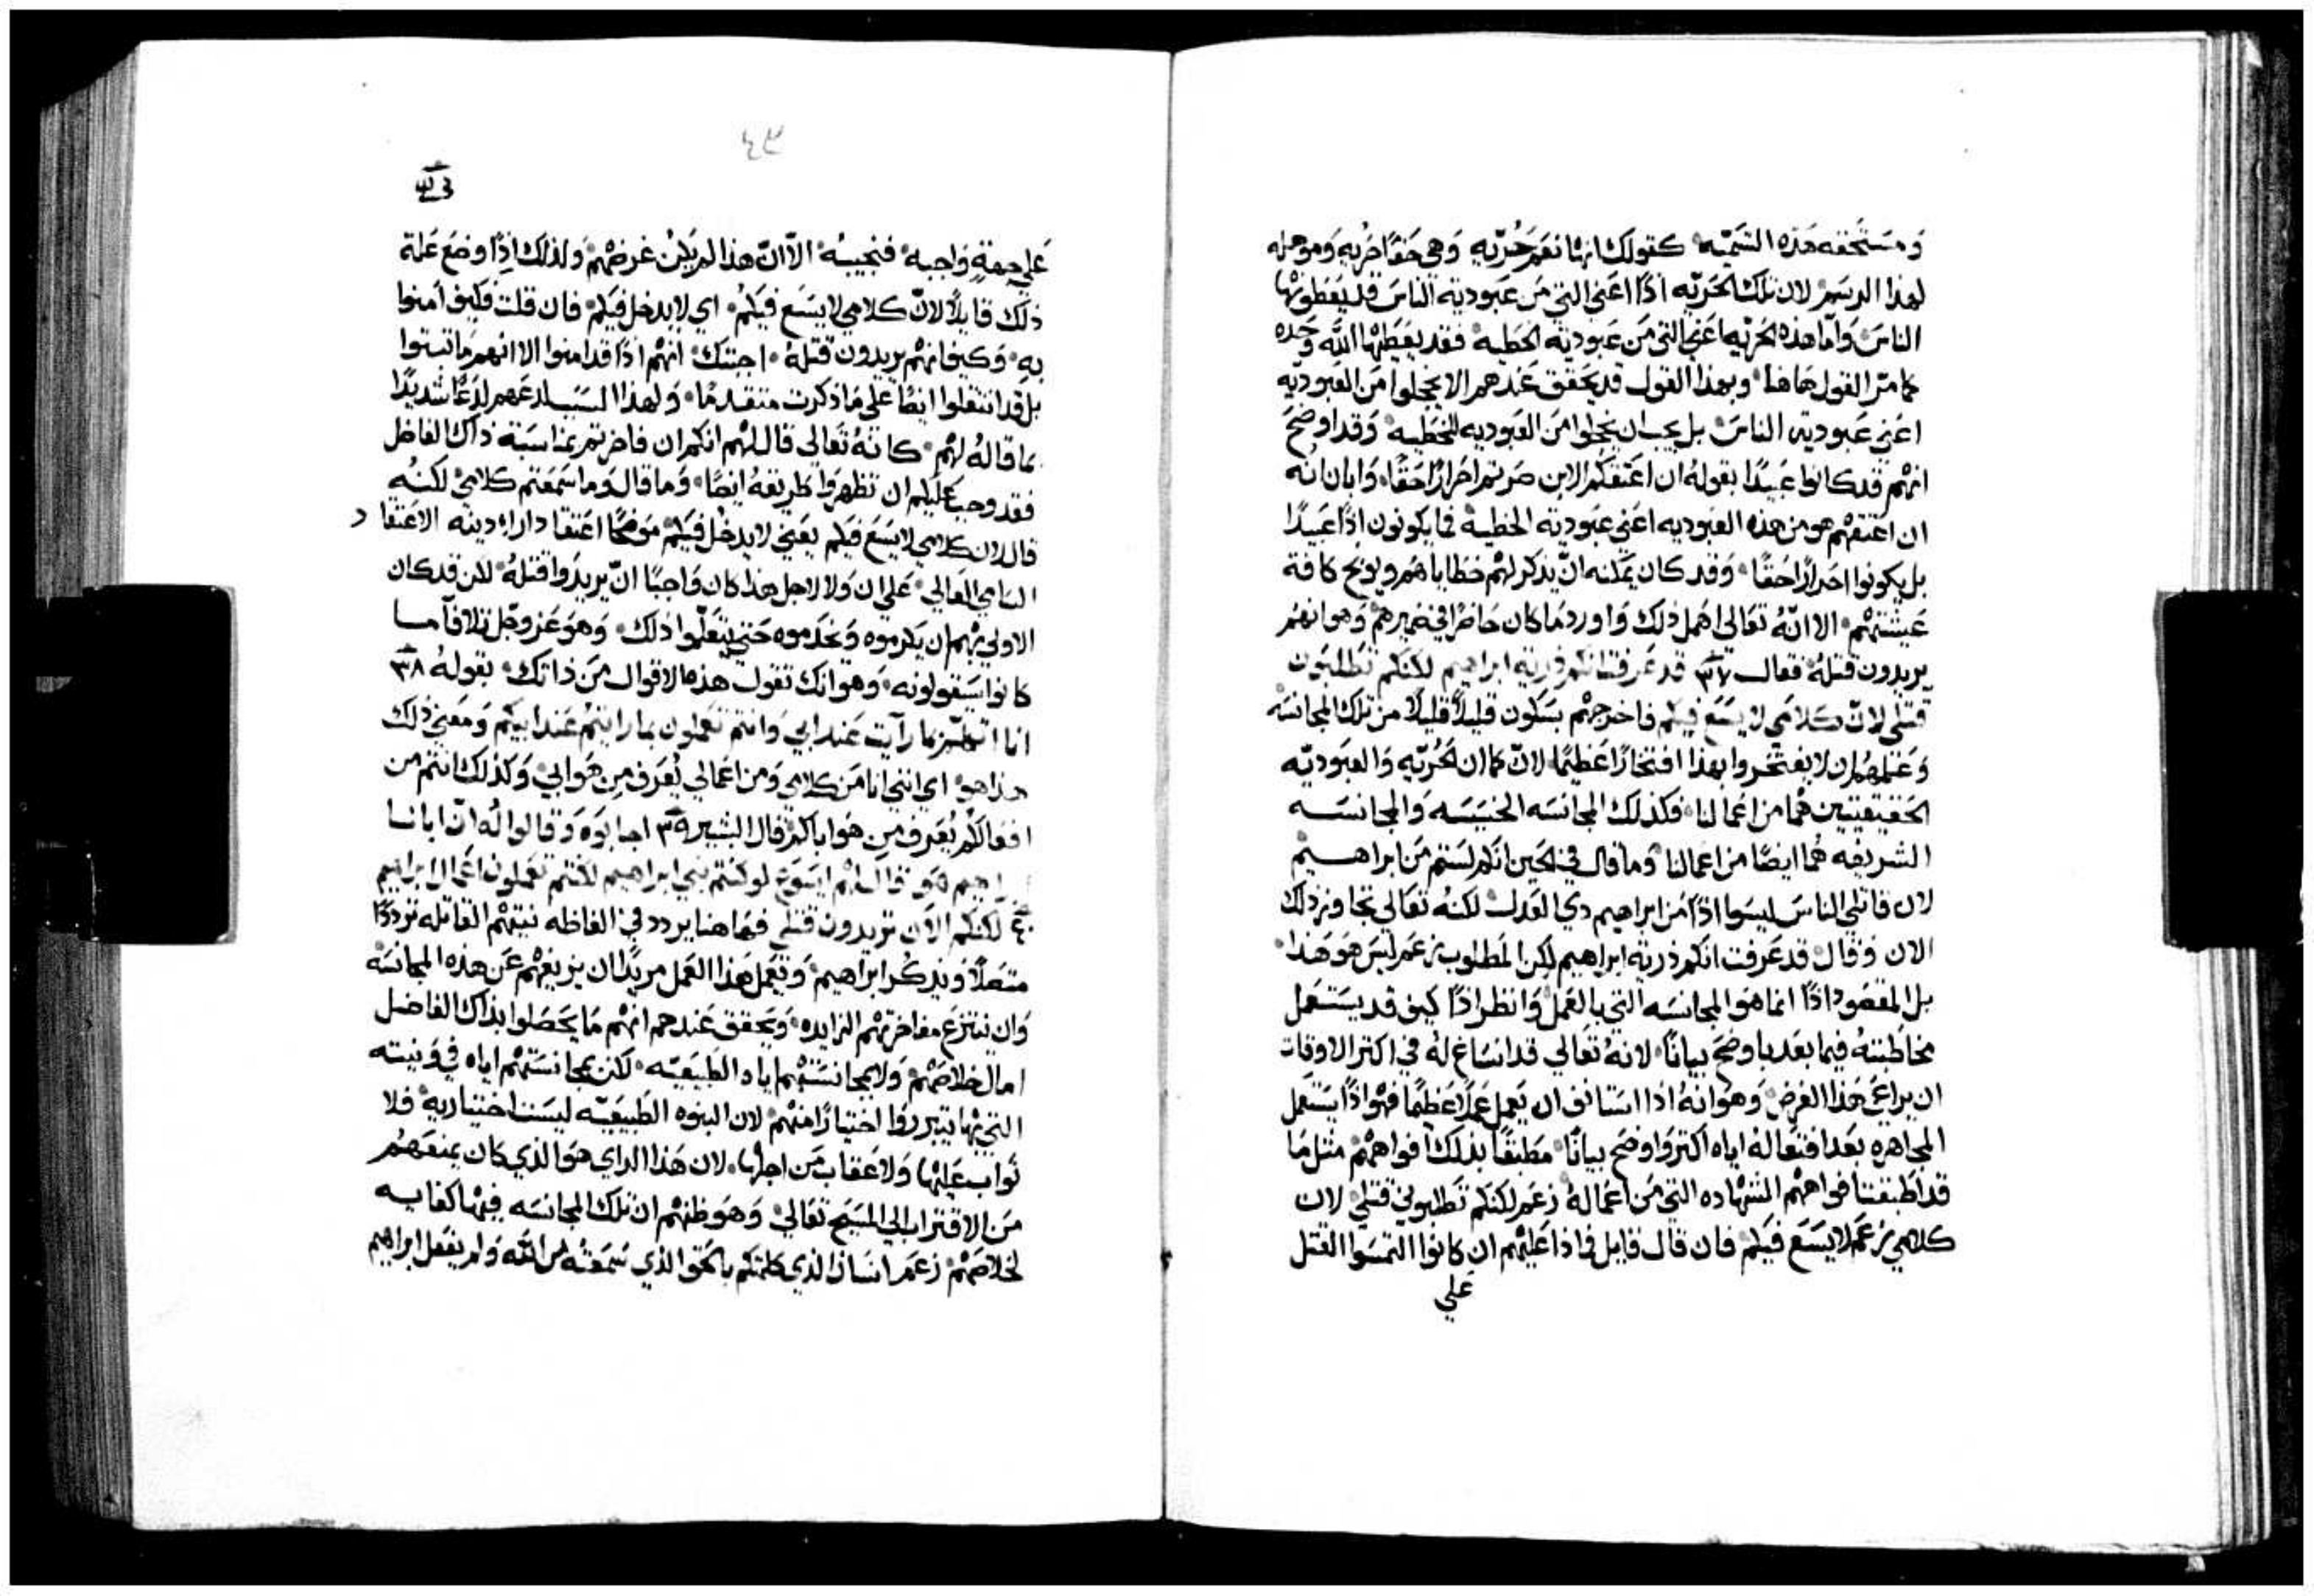 ومستحقه هذه التسميه كقولك انها نعم حريه وهي حقا حريه وموهله
لهذا الرسم لان تلك الحريه اذا اعني التي من عبودية الناس قد يعطونها
الناس واما هذه الحريه اعني التي من عبودية الخطيه فقد يعطيها الله وحده
كما مر القول هاهنا وبهذا القول قد يحقق عندهم الا يخجلوا من العبوديه
اعني عبودية الناس بل يجب ان يخجلوا من العبوديه للخطيه وقد اوضح
انهم قد كانوا عبيدا بقوله ان اعتقكم الابن صرتم احرارا حقا وابان انه
ان اعتقهم هو من هذه العبوديه اعني عبودية الخطية فما يكونون اذا عبيدا
بل يكونوا احرارا حقا وقد كان يمكنه ان يذكر لهم خطاياهم ويوبخ كافة
عيشتهم الا انه تعالى اهمل ذلك واورد ما كان حاضرا في ضميرهم وهو انهم
يريدون قتله فقال ٣٧ قد عرفت انكم ذرية ابراهيم لكنكم تطلبون
قتلي لان كلامي لا يسع فيكم فاخرجهم بسكون قليلا قليلا من تلك المجانسه
وعلمهم ان لا يفتخروا بهذا افتخارا عظيما لان كما ان الحريه والعبوديه
الحقيقيتين هما من اعمالنا فكذلك المجانسه الخسيسه والمجانسه
الشريفه هما ايضا من اعمالنا وما قال في الحين انكم لستم من ابراهيم
لان قاتلي الناس ليسوا اذا من ابراهيم ذي العدل لكنه تعالى تجاوز ذلك
الان وقال قد عرفت انكم ذرية ابراهيم لكن المطلوب زعم ليس هو هذا
بل المقصود اذا انما هو المجانسه التي بالعمل وانظر اذا كيف قد يستعمل
مخاطبته فيما بعد باوضح بيانا لانه تعالى قد انساغ له في اكثر الاوقات
ان يراعي هذا الغرض وهو انه اذا استانف ان يعمل عملا عظيما فهو اذا يستعمل
المجاهره بعد افتعاله اياه اكثر واوضح بيانا مطبقا بذلك افواههم مثل ما
قد اطبقت افواههم الشهاده التي من اعماله زعم لكنكم تطلبوني قتلي لان
كلامي زعم لا يسع فيكم فان قال قايل فماذا عليهم ان كانوا التمسوا القتل
علي
٤٣
علي جهة واجبه فنجيبه الا ان هذا لم يكن غرضهم ولذلك اذا وضع علة
ذلك قايلا لان كلامي لا يسع فيكم اي لا يدخل فيكم فان قلت فكيف امنوا
به وكيف انهم يريدون قتله اجبتك انهم اذا قد امنوا الا انهم ما ثبتوا
بل قد انتقلوا ايضا علي ما ذكرت متقدما ولهذا السبب لدغهم لدغا شديدا
بما قاله لهم كانه تعالى قال لهم انكم ان فاخرتم بمناسبة ذاك الفاضل
فقد وجب عليكم ان تظهروا طريقه ايضا وما قال وما سمعتم كلامي لكنه
قال لان كلامي لا يسع فيكم يعني لا يدخل فيكم موضحا اعتقاد اراء دينه الاعتقاد
السامي العالي علي ان ولا لاجل هذا كان واجبا ان يريدوا قتله لكن قد كان
الاولي بهم ان يكرموه ويخدموه حتي يتعلموا ذلك وهو عز وجل تلافا ما
كانوا سيقولونه وهو انك تقول هذه الاقوال من ذاتك بقوله ٣٨
انا اتكلم بما رايت عند ابي وانتم تعملون بما رايتم عند ابيكم ومعني ذلك
هذا هو اي انني انا من كلامي ومن اعمالي يعرف من هو ابي وكذلك انتم من
افعالكم يعرف من هو اباكم قال البشير ٣٩ اجابوه وقالوا له ان ابانا
ابراهيم هو قال لهم ايسوع لو كنتم بني ابراهيم لكنتم تعملون اعمال ابراهيم
٤٠ لكنكم الان تريدون قتلي فهاهنا يردد في الفاظه نيتهم القاتله ترددا
متصلا ويذكر ابراهيم ويعمل هذا العمل مريدا ان يزيغهم عن هذه المجانسه
وان ينتزع مفاخرتهم الزايده ويحقق عندهم انهم ما يحصلوا بذاك الفاضل
امال خلاصهم ولا بمجانستهم اياه الطبيعيه لكن بمجانستهم اياه في نيته
التي بها يتبرروا اختيارا منهم لان البنوه الطبيعيه ليست اختياريه فلا
ثواب عليها ولا عقاب من اجلها لان هذا الراي هو الذي كان يمنعهم
من الاقتراب الي المسيح تعالي وهو ظنهم ان تلك المجانسه فيها كفايه
لخلاصهم زعم انسانا الذي كلمتكم بالحق الذي سمعته من الله ولم يفعل ابراهيم